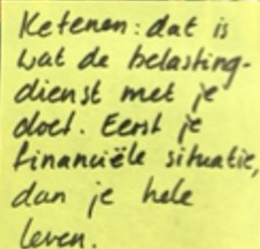 Ketenen: dat is
wat de belasting-
dienst met je
doet. Eerst je
financiële situatie,
dan je hele
leven.